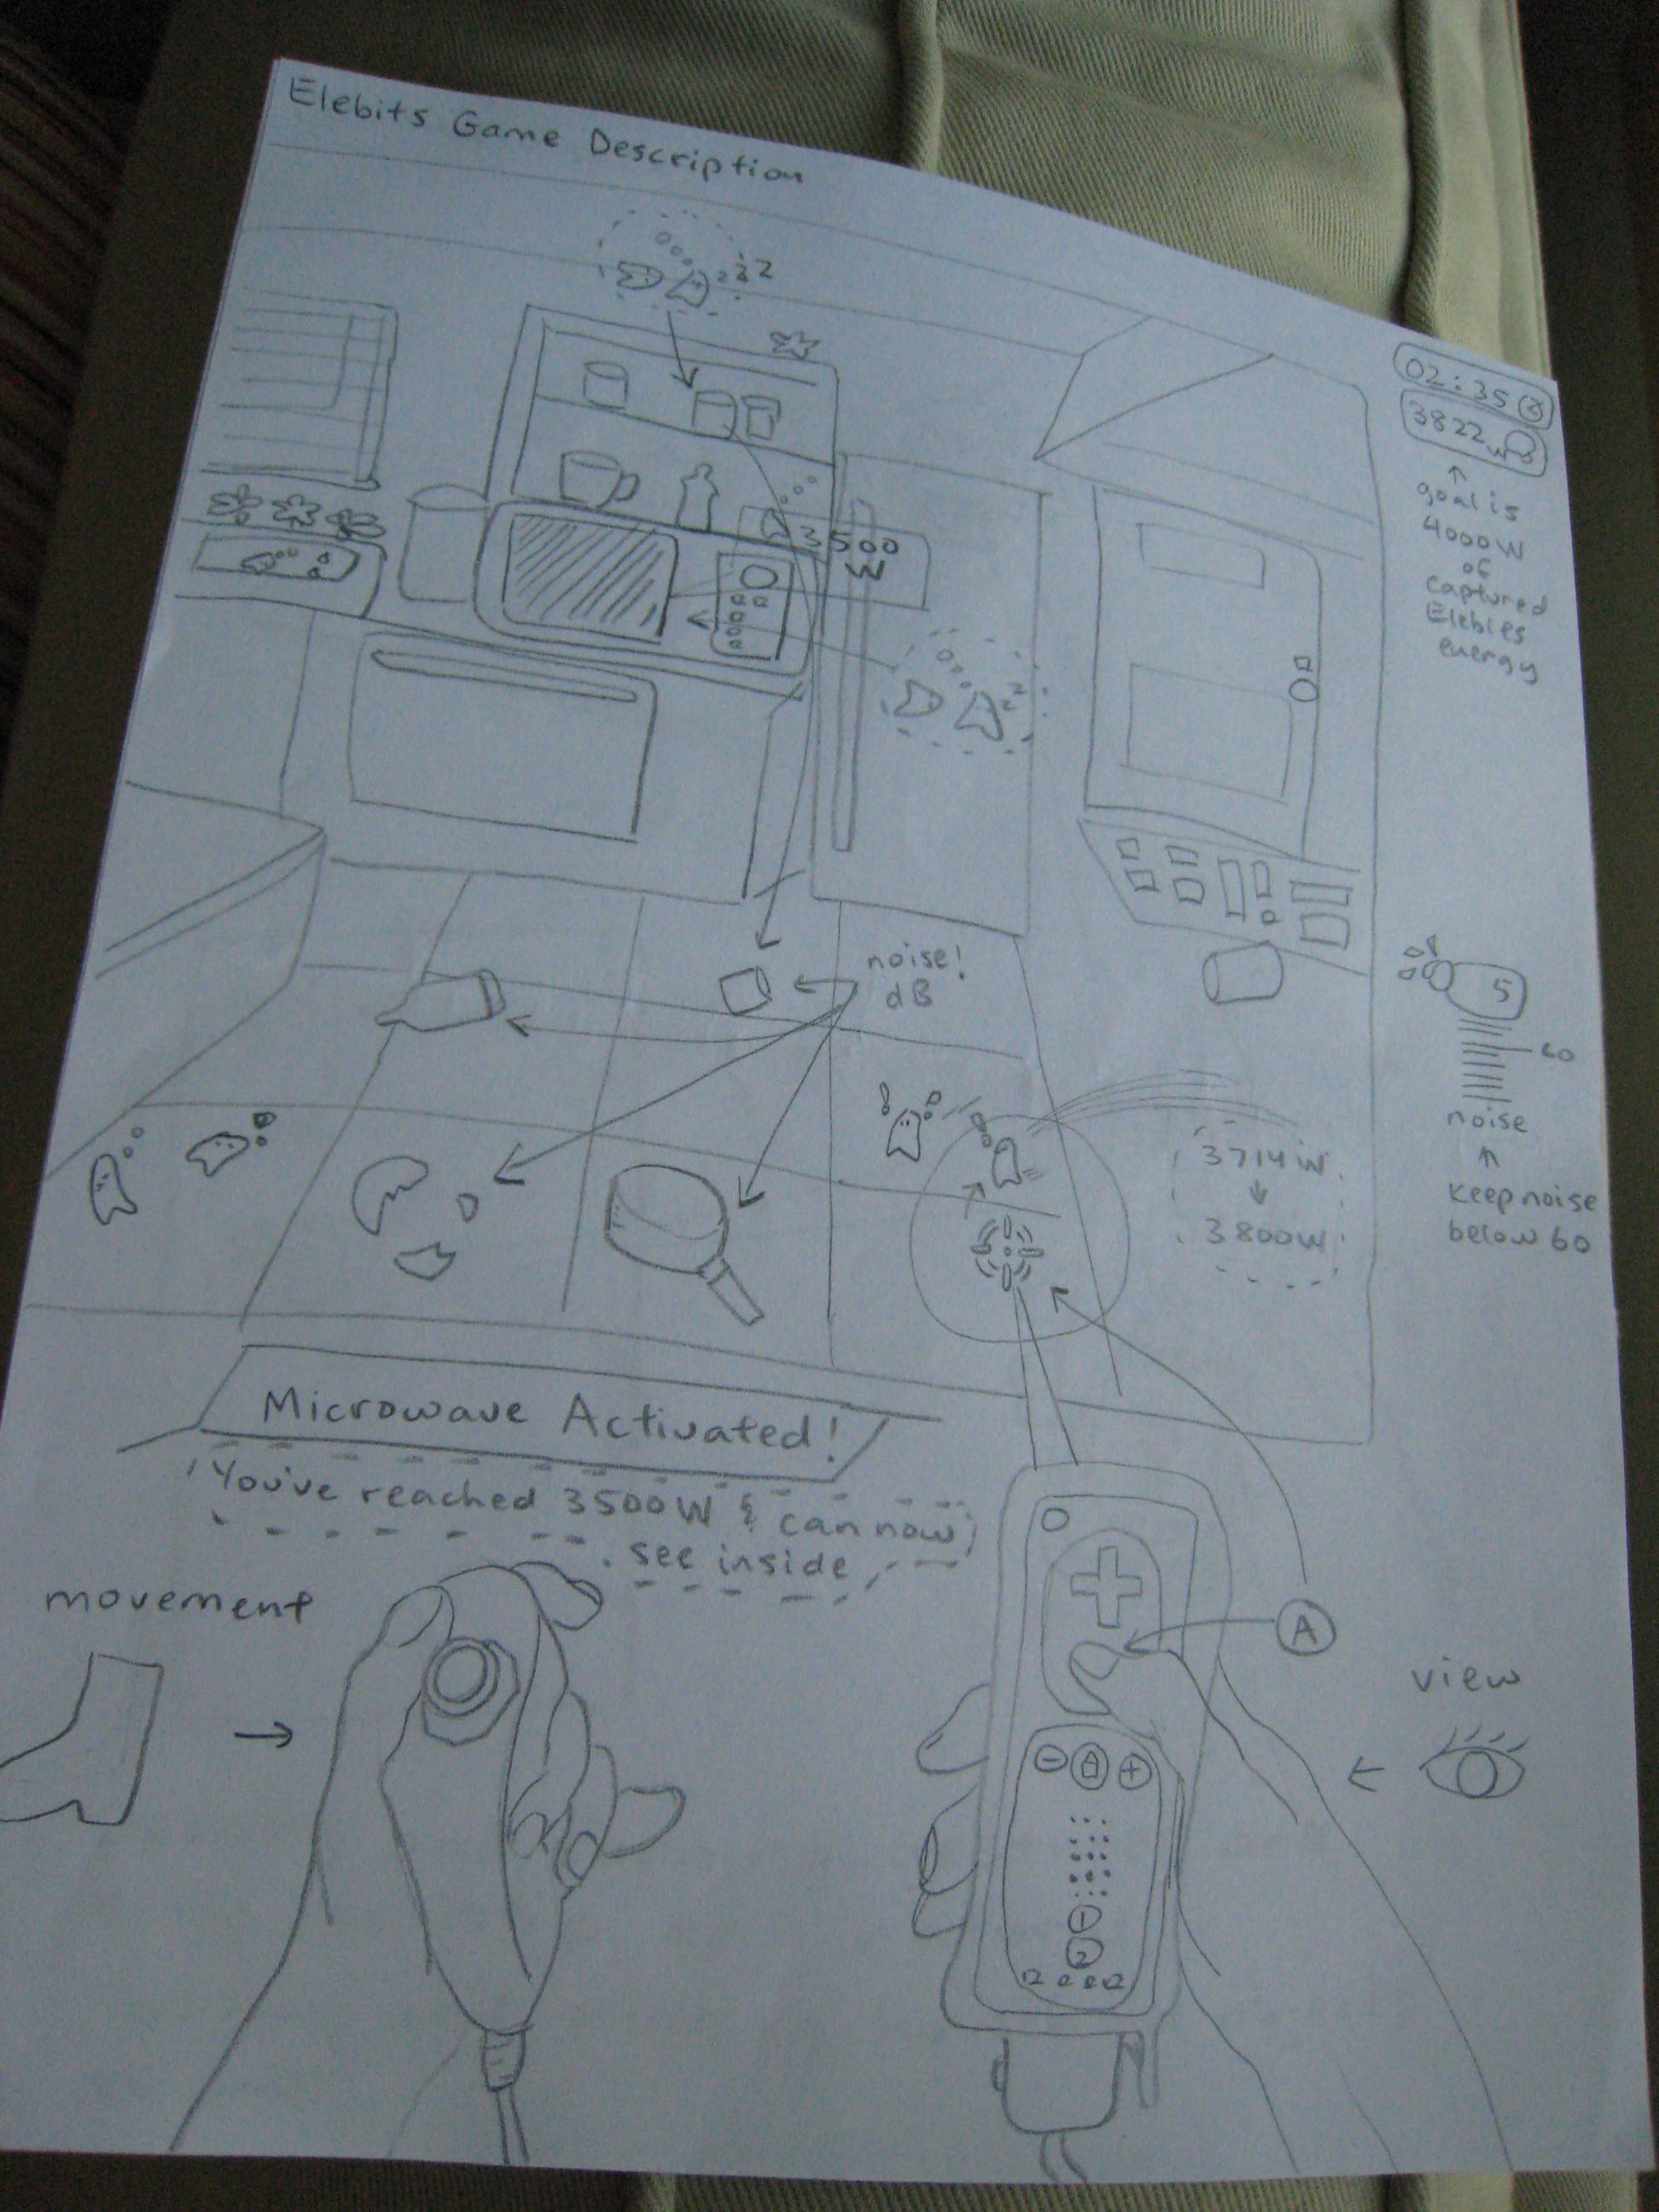 Elebits Game Description
zzz
02:35
3822w
goal is
4000W
of
captured
Elebies
energy
3500
W
zz
noise!
dB
5
60
noise
keep noise
below 60
!
3714W
3800W
Microwave Activated!
You've reached 3500W & can now
see inside
movement
A
view
- +
1
2